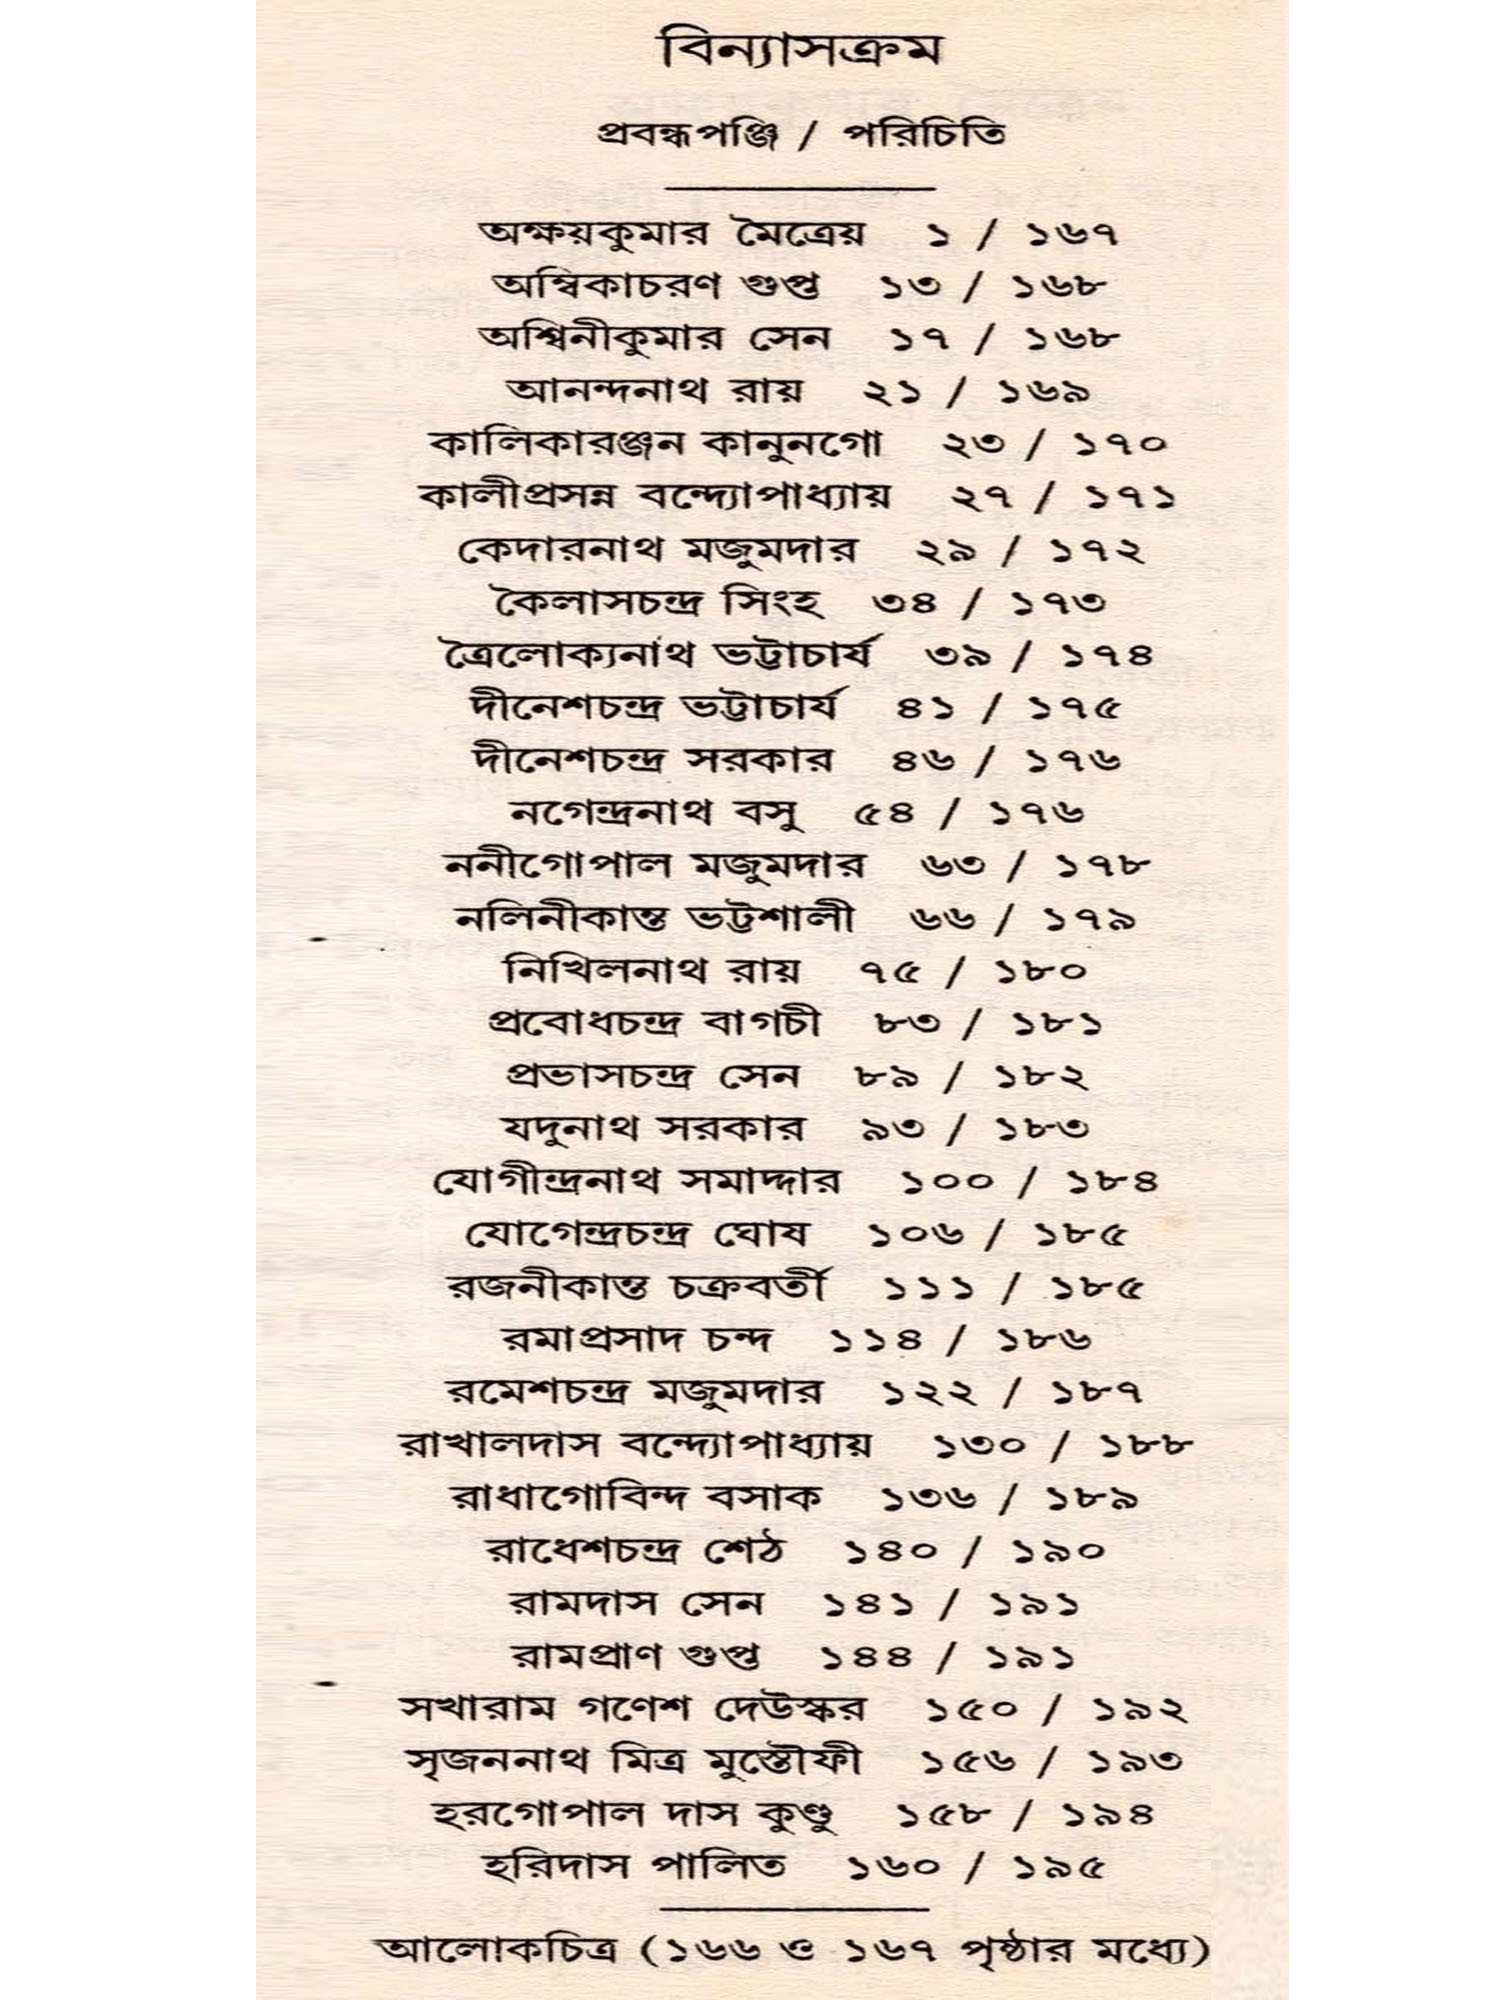 বিন্যাসক্রম
প্রবন্ধপঞ্জি / পরিচিতি
অক্ষয়কুমার মৈত্রেয় ১ / ১৬৭
অম্বিকাচরণ গুপ্ত ১৩ / ১৬৮
অশ্বিনীকুমার সেন ১৭ / ১৬৮
আনন্দনাথ রায় ২১ / ১৬৯
কালিকারঞ্জন কানুনগো ২৩ / ১৭০
কালীপ্রসন্ন বন্দ্যোপাধ্যায় ২৭ / ১৭১
কেদারনাথ মজুমদার ২৯ / ১৭২
কৈলাসচন্দ্র সিংহ ৩৪ / ১৭৩
ত্রৈলোক্যনাথ ভট্টাচার্য ৩৯ / ১৭৪
দীনেশচন্দ্র ভট্টাচার্য ৪১ / ১৭৫
দীনেশচন্দ্র সরকার ৪৬ / ১৭৬
নগেন্দ্রনাথ বসু ৫৪ / ১৭৬
ননীগোপাল মজুমদার ৬৩ / ১৭৮
নলিনীকান্ত ভট্টশালী ৬৬ / ১৭৯
নিখিলনাথ রায় ৭৫ / ১৮০
প্রবোধচন্দ্র বাগচী ৮৩ / ১৮১
প্রভাসচন্দ্র সেন ৮৯ / ১৮২
যদুনাথ সরকার ৯৩ / ১৮৩
যোগীন্দ্রনাথ সমাদ্দার ১০০ / ১৮৪
যোগেন্দ্রচন্দ্র ঘোষ ১০৬ / ১৮৫
রজনীকান্ত চক্রবর্তী ১১১ / ১৮৫
রমাপ্রসাদ চন্দ ১১৪ / ১৮৬
রমেশচন্দ্র মজুমদার ১২২ / ১৮৭
রাখালদাস বন্দ্যোপাধ্যায় ১৩০ / ১৮৮
রাধাগোবিন্দ বসাক ১৩৬ / ১৮৯
রাধেশচন্দ্র শেঠ ১৪০ / ১৯০
রামদাস সেন ১৪১ / ১৯১
রামপ্রাণ গুপ্ত ১৪৪ / ১৯১
সখারাম গণেশ দেউস্কর ১৫০ / ১৯২
সৃজননাথ মিত্র মুস্তৌফী ১৫৬ / ১৯৩
হরগোপাল দাস কুণ্ডু ১৫৮ / ১৯৪
হরিদাস পালিত ১৬০ / ১৯৫
আলোকচিত্র (১৬৬ ও ১৬৭ পৃষ্ঠার মধ্যে)